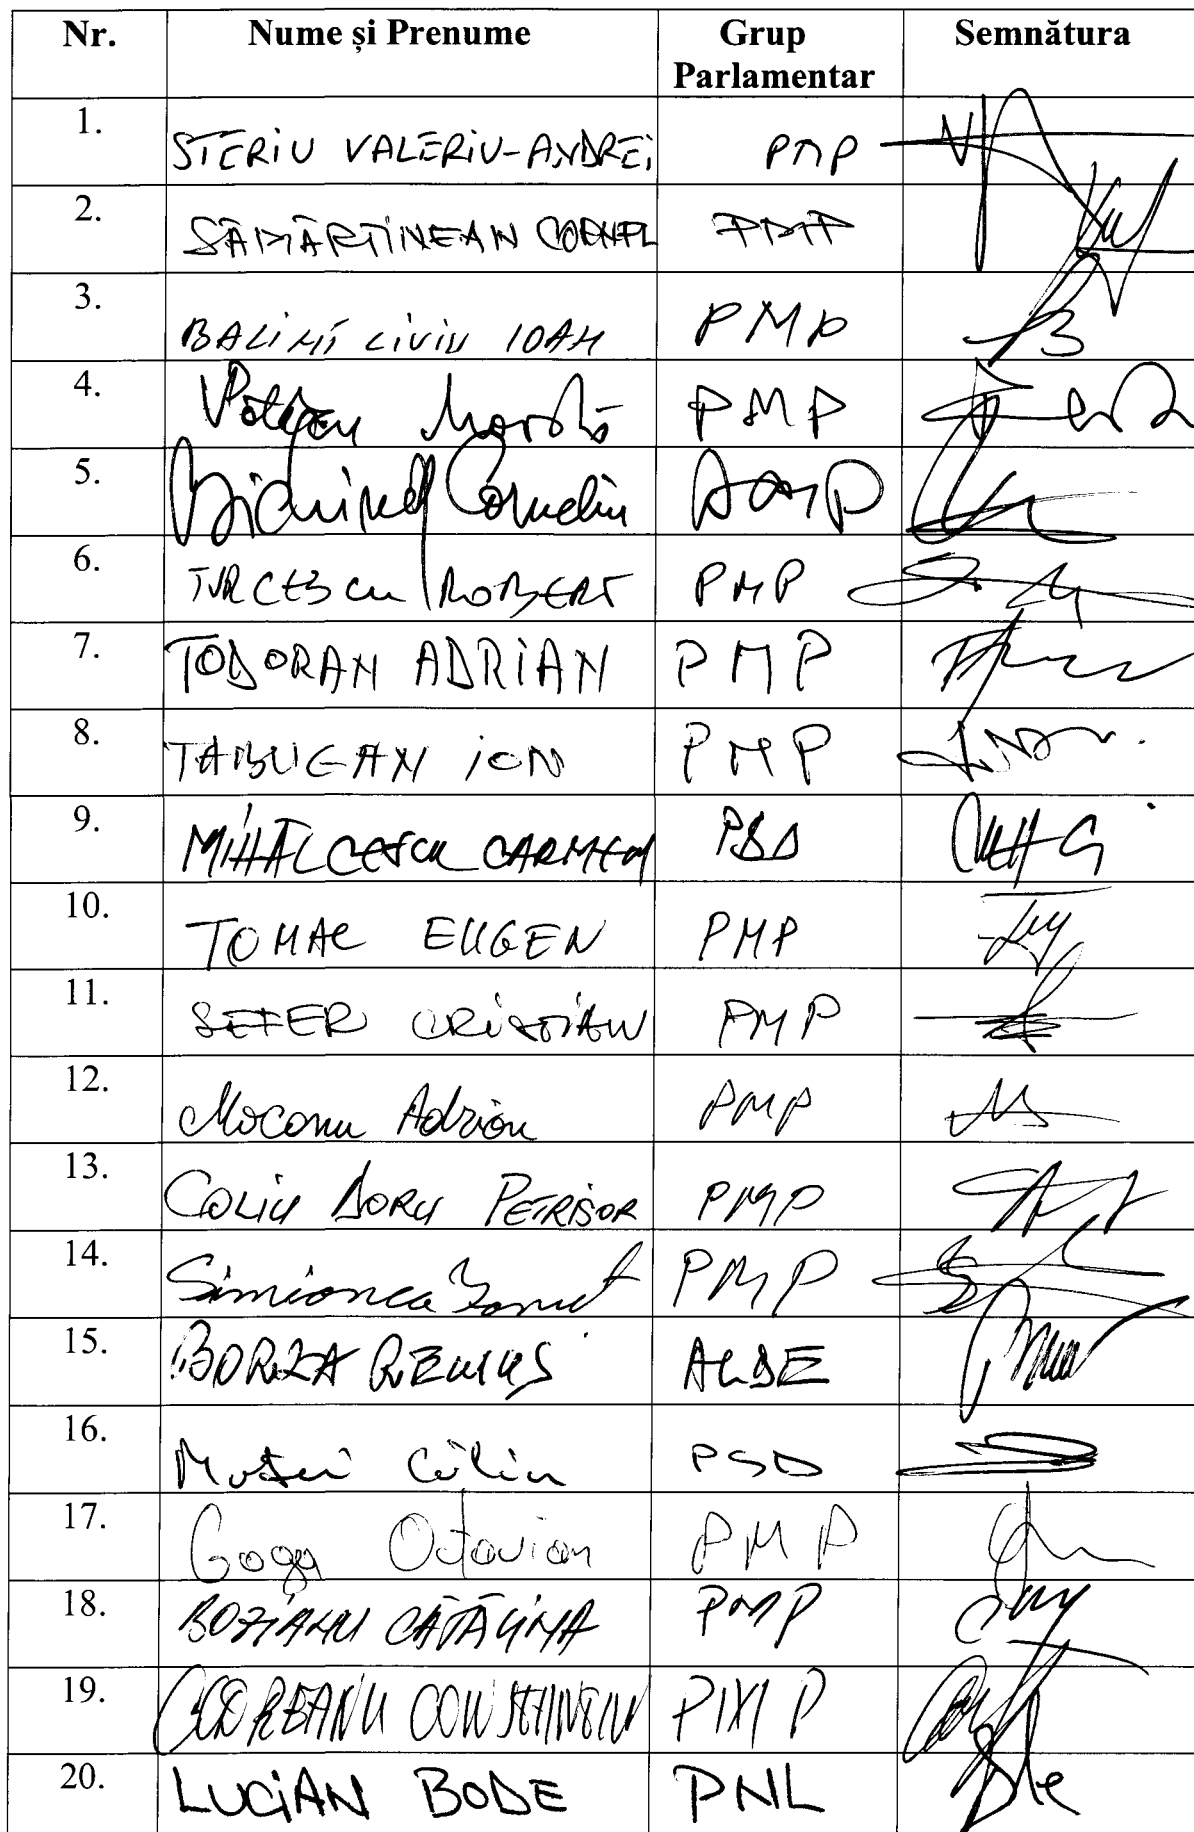 Nr. Nume și Prenume Grup Parlamentar Semnătura
1. STERIU VALERIU-ANDREI PMP
2. SĂMĂRTINEAN CORNEL PMP
3. BALINT LIVIU IOAN PMP
4. PMP
5. Bichineț Corneliu PMP
6. TURCESCU ROBERT PMP
7. TODORAN ADRIAN PMP
8. TABUGAN ION PMP
9. MIHĂLCESCU CARMEN PSD
10. TOMAC EUGEN PMP
11. SEFER CRISTIAN PMP
12. Mocanu Adrian PMP
13. COLIU DORU PETRISOR PMP
14. Simionca Ionut PMP
15. BORZA REMUS ALDE
16. Matei Călin PSD
17. Goga Octavian PMP
18. BOZIANU CĂTĂLINA PMP
19. CODREANU CONSTANTIN PMP
20. LUCIAN BODE PNL